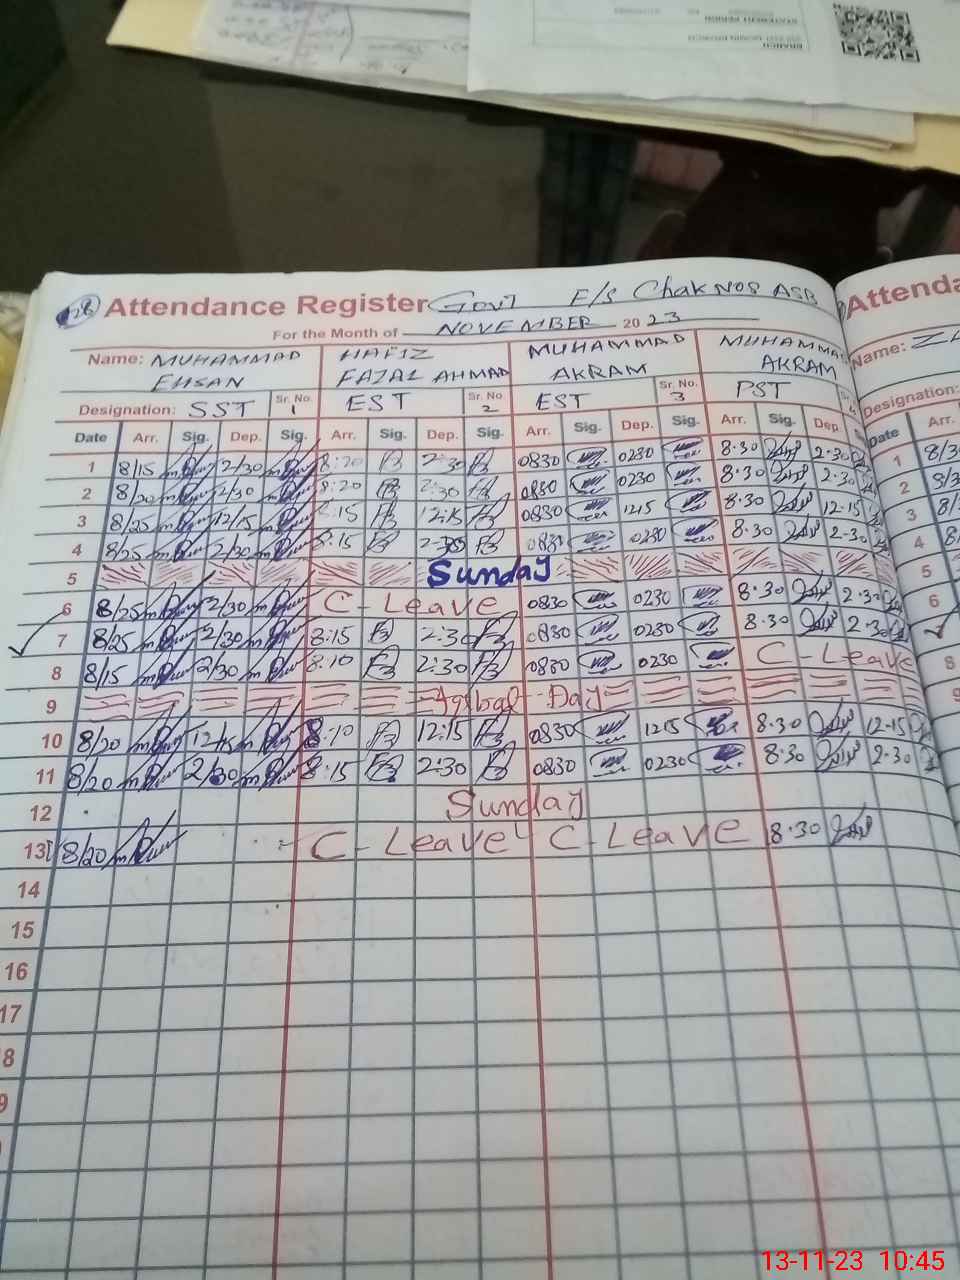 STATEMENT PERIOD
BRANCH
28 Attendance Register Govt E/S Chak No8 ASB
Attenda
For the Month of NOVEMBER 2023
Name: MUHAMMAD EHSAN HAFIZ FAZAL AHMAD MUHAMMAD AKRAM MUHAMMAD AKRAM Name:
Designation: SST Sr. No. 1 EST Sr. No. 2 EST Sr. No. 3 PST Designation:
Date Arr. Sig. Dep. Sig. Arr. Sig. Dep. Sig. Arr. Sig. Dep. Sig. Arr. Sig. Dep. Date Arr.
1 8/15 2/30 8:20 2:30 0830 0230 8.30 2.30 1
2 8/20 2/30 8:20 2:30 0830 0230 8.30 2.30 2
3 8/25 12/15 8:15 12:15 0830 1215 8.30 12.15 3
4 8/25 2/30 8:15 2:30 0830 0230 8.30 2.30 4
5 Sunday 5
6 8/25 2/30 C-Leave 0830 0230 8.30 2.30 6
7 8/25 2/30 8:15 2:30 0830 0230 8.30 2.30
8 8/15 2/30 8:10 2:30 0830 0230 C-Leave 8
9 Iqbal Day 9
10 8/20 12/15 8:10 12:15 0830 1215 8.30 12.15
11 8/20 2/30 8:15 2:30 0830 0230 8.30 2.30
12 Sunday
13 8/20 C-Leave C-Leave 8.30
14
15
16
17
8
9
13-11-23 10:45